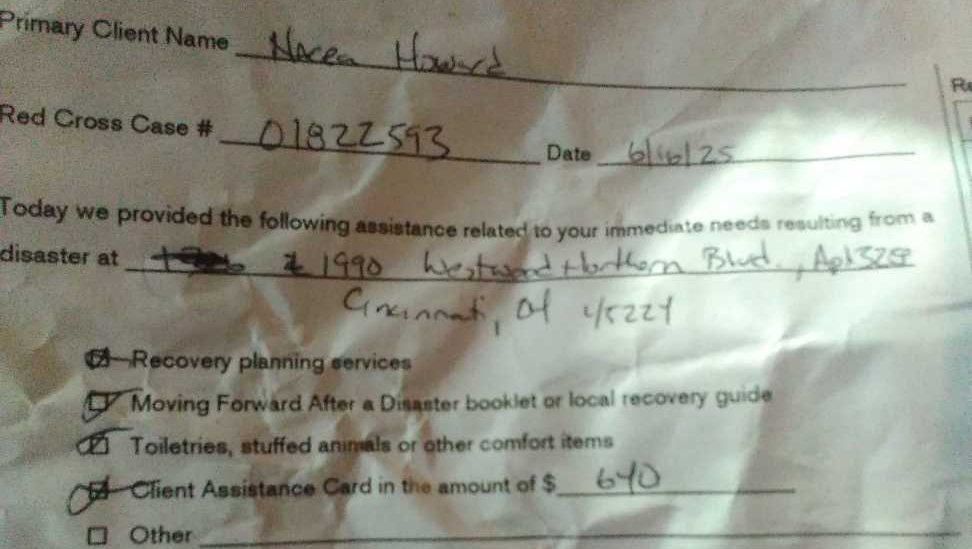 Primary Client Name Nacea Howard
Red Cross Case # 01822593
Date 6/16/25
Today we provided the following assistance related to your immediate needs resulting from a
disaster at 1990 Westwood Northern Blvd., Apt
Cincinnati, OH
Recovery planning services
Moving Forward After a Disaster booklet or local recovery guide
Toiletries, stuffed animals or other comfort items
Client Assistance Card in the amount of $ 640
Other